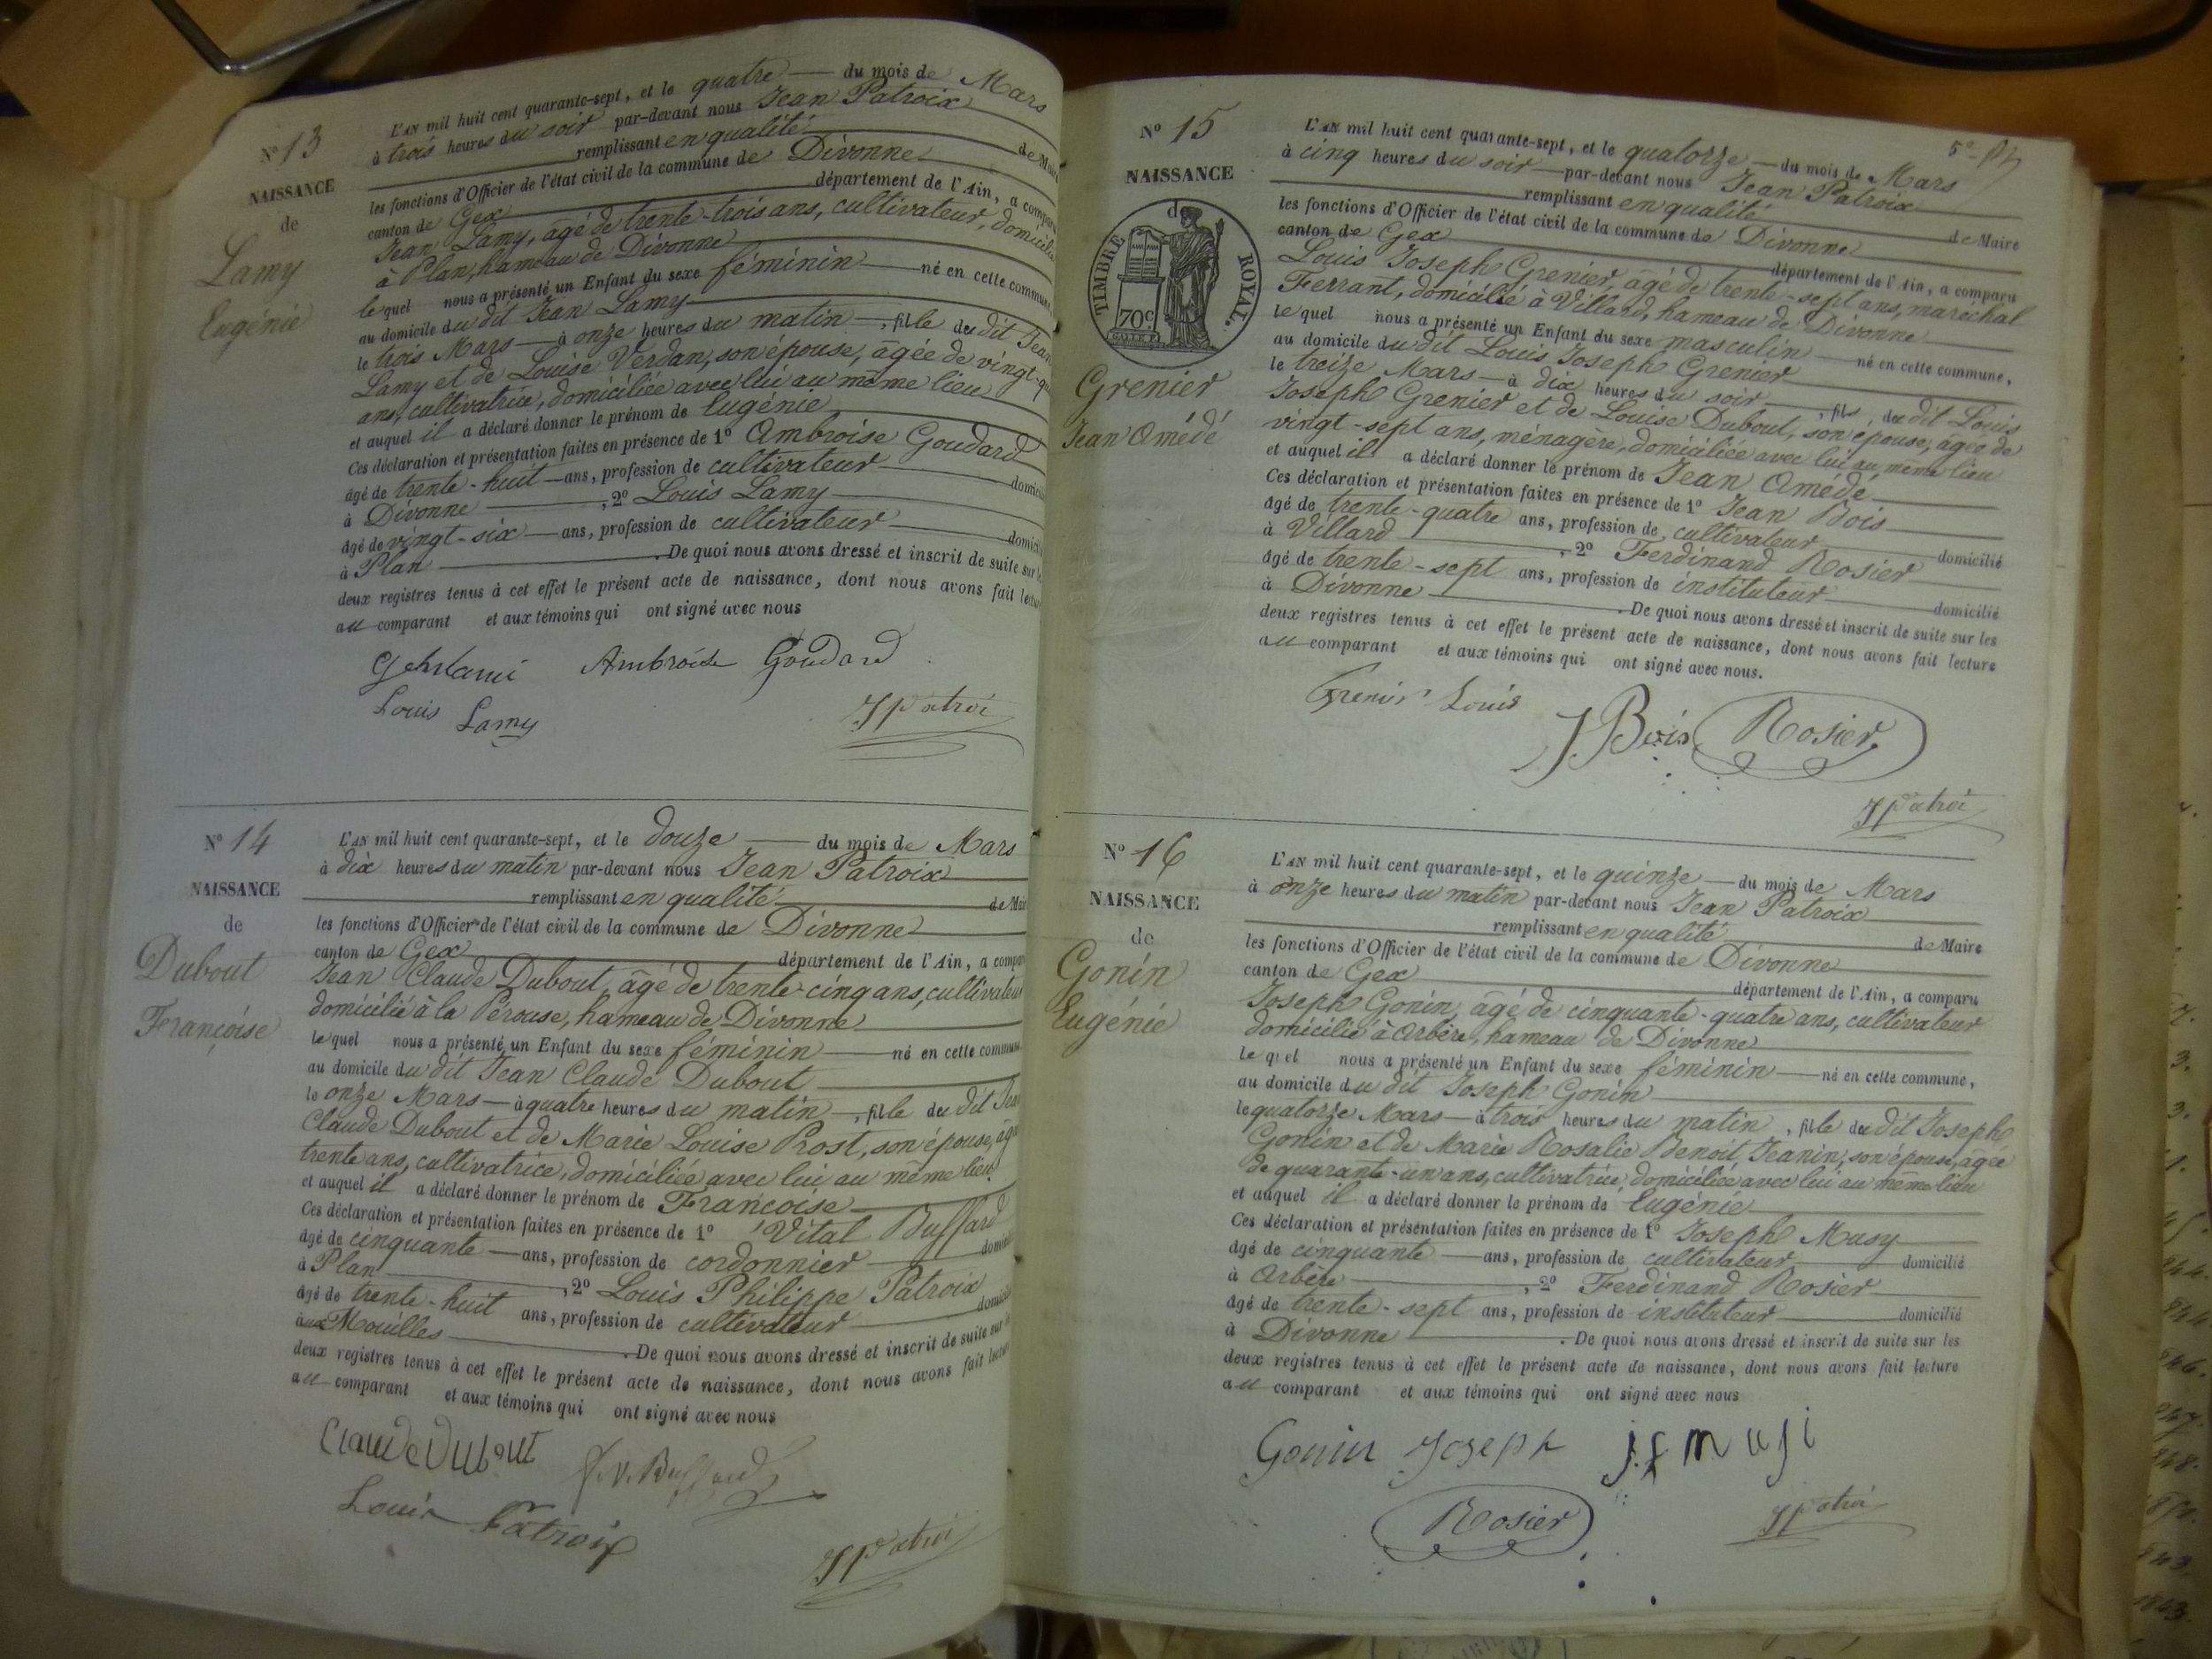 N° 13
NAISSANCE
de
Lamy
Eugénie
L'AN mil huit cent quarante-sept, et le quatre du mois de Mars
à trois heures du soir par-devant nous Jean Patroix
remplissant en qualité de Maire
les fonctions d'Officier de l'état civil de la commune de Divonne
canton de Gex département de l'Ain, a comparu
Jean Lamy, âgé de trente-trois ans, cultivateur, domicilié
à Plan, hameau de Divonne
lequel nous a présenté un Enfant du sexe féminin né en cette commune
au domicile du dit Jean Lamy
le trois Mars à onze heures du matin, fille du dit Jean
Lamy et de Louise Verdan, son épouse, âgée de vingt-
ans, cultivatrice, domiciliée avec lui au même lieu
et auquel il a déclaré donner le prénom de Eugénie
Ces déclaration et présentation faites en présence de 1° Ambroise Goudard
âgé de trente-huit ans, profession de cultivateur domicilié
à Divonne, 2° Louis Lamy
âgé de vingt-six ans, profession de cultivateur domicilié
à Plan. De quoi nous avons dressé et inscrit de suite sur
deux registres tenus à cet effet le présent acte de naissance, dont nous avons fait lecture
au comparant et aux témoins qui ont signé avec nous
Ambroise Goudard
Louis Lamy
JPatroi
N° 14
NAISSANCE
de
Dubout
Françoise
L'AN mil huit cent quarante-sept, et le douze du mois de Mars
à dix heures du matin par-devant nous Jean Patroix
remplissant en qualité de Maire
les fonctions d'Officier de l'état civil de la commune de Divonne
canton de Gex département de l'Ain, a comparu
Jean Claude Dubout, âgé de trente-cinq ans, cultivateur
domicilié à la Pérouse, hameau de Divonne
lequel nous a présenté un Enfant du sexe féminin né en cette commune
au domicile du dit Jean Claude Dubout
le onze Mars à quatre heures du matin, fille du dit Jean
Claude Dubout et de Marie Louise Prost, son épouse, âgée
trente ans, cultivatrice, domiciliée avec lui au même lieu
et auquel il a déclaré donner le prénom de Françoise
Ces déclaration et présentation faites en présence de 1° Vital Buffard
âgé de cinquante ans, profession de cordonnier domicilié
à Plan, 2° Louis Philippe Patroix
âgé de trente-huit ans, profession de cultivateur domicilié
aux Mouilles. De quoi nous avons dressé et inscrit de suite sur
deux registres tenus à cet effet le présent acte de naissance, dont nous avons fait lecture
au comparant et aux témoins qui ont signé avec nous
Claude Dubout J.V. Buffard
Louis Patroix
JPatroi
5e
N° 15
NAISSANCE
de
TIMBRE ROYAL.
70c
Grenier
Jean Amédé
L'AN mil huit cent quarante-sept, et le quatorze du mois de Mars
à cinq heures du soir par-devant nous Jean Patroix
remplissant en qualité de Maire
les fonctions d'Officier de l'état civil de la commune de Divonne
canton de Gex département de l'Ain, a comparu
Louis Joseph Grenier, âgé de trente-sept ans, maréchal
Ferrant, domicilié à Villard, hameau de Divonne
lequel nous a présenté un Enfant du sexe masculin né en cette commune,
au domicile du dit Louis Joseph Grenier
le treize Mars à dix heures du soir, fils du dit Louis
Joseph Grenier et de Louise Dubout, son épouse, âgée de
vingt-sept ans, ménagère, domiciliée avec lui au même lieu
et auquel il a déclaré donner le prénom de Jean Amédé
Ces déclaration et présentation faites en présence de 1° Jean Bois
âgé de trente-quatre ans, profession de cultivateur domicilié
à Villard, 2° Ferdinand Rosier
âgé de trente-sept ans, profession de instituteur domicilié
à Divonne. De quoi nous avons dressé et inscrit de suite sur les
deux registres tenus à cet effet le présent acte de naissance, dont nous avons fait lecture
au comparant et aux témoins qui ont signé avec nous.
Grenier Louis
J Bois Rosier
JPatroi
N° 16
NAISSANCE
de
Gonin
Eugénie
L'AN mil huit cent quarante-sept, et le quinze du mois de Mars
à onze heures du matin par-devant nous Jean Patroix
remplissant en qualité de Maire
les fonctions d'Officier de l'état civil de la commune de Divonne
canton de Gex département de l'Ain, a comparu
Joseph Gonin, âgé de cinquante-quatre ans, cultivateur
domicilié à Arbère, hameau de Divonne
lequel nous a présenté un Enfant du sexe féminin né en cette commune,
au domicile du dit Joseph Gonin
le quatorze Mars à trois heures du matin, fille du dit Joseph
Gonin et de Marie Rosalie Benoit Jeanin, son épouse, âgée
de quarante-un ans, cultivatrice, domiciliée avec lui au même lieu
et auquel il a déclaré donner le prénom de Eugénie
Ces déclaration et présentation faites en présence de 1° Joseph Musy
âgé de cinquante ans, profession de cultivateur domicilié
à Arbère, 2° Ferdinand Rosier
âgé de trente-sept ans, profession de instituteur domicilié
à Divonne. De quoi nous avons dressé et inscrit de suite sur les
deux registres tenus à cet effet le présent acte de naissance, dont nous avons fait lecture
au comparant et aux témoins qui ont signé avec nous
Gonin Joseph j.f musi
Rosier
JPatroi